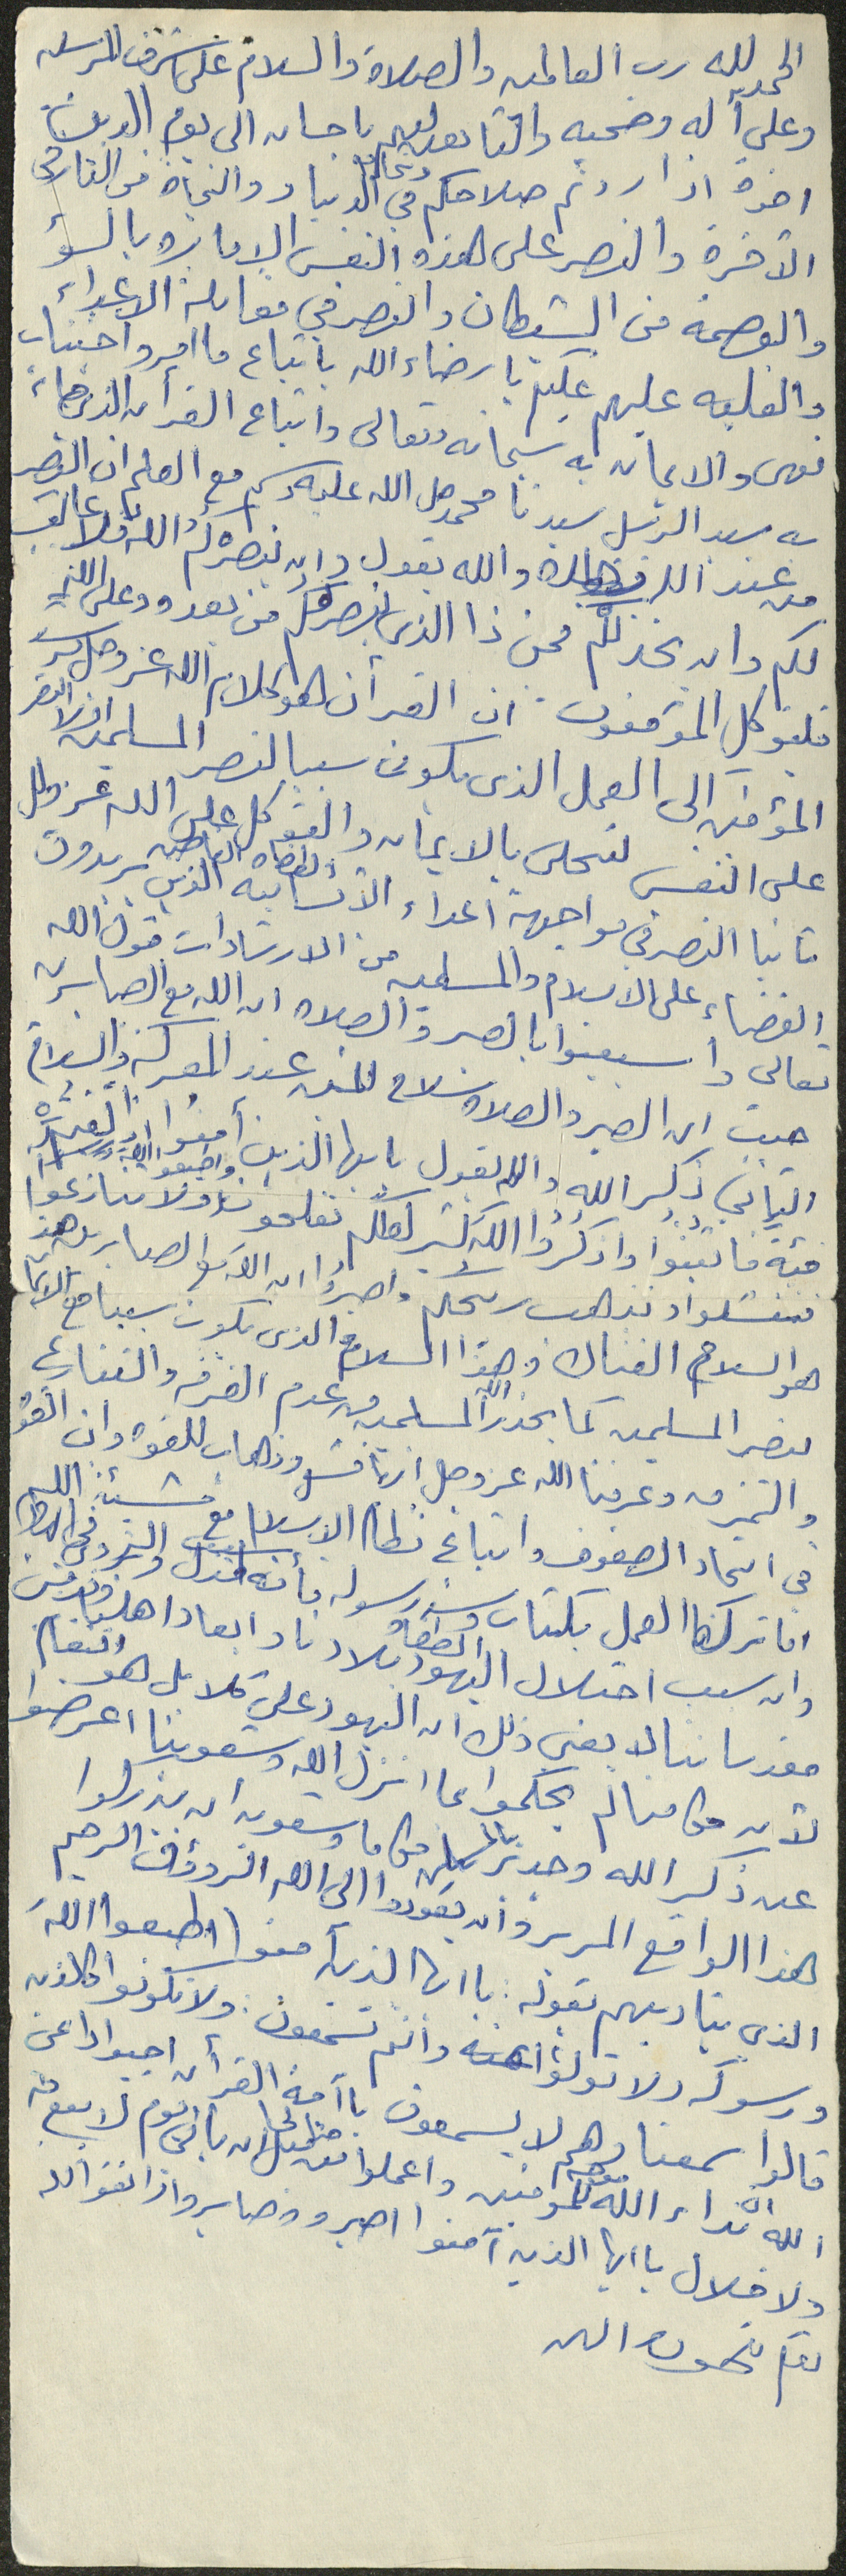 الحمد لله رب العالمين والصلاة والسلام على شرف المرسلين
وعلى آله وصحبه والتابعين لهم باحسان الى يوم الدين
اخوة اذا اردتم صلاحكم ونجاتكم في الدنيا والنجاة من النار في
الآخرة والنصر على هذه النفس الامارة بالسؤ
والعصمة من الشيطان والنصر في مقابلة الاعداء
والغلبه عليهم عليكم بارضاء الله باتباع ما امر واجتناب
نهى والايمان به سبحانه وتعالى واتباع القرآن الذي جاء
به سيد الرسل سيدنا محمد صل الله عليه وسلم مع العلم ان النصر
من عند الله والله يقول وان ينصركم الله فلا غالب
لكم وان يخذلكم فمن ذا الذي ينصركم من بعده وعلى الله
فليتوكل المؤمنون ان القرآن هو كلام الله عز وجل
المؤمنين الى العمل الذي يكون سببا لنصر المسلمين اولا النصر
على النفس لتحلى بالايمان والتوكل على الله عز وجل
ثانيا النصر في مواجهة اعداء الانسانية والطغاة الذين يريدون
القضاء على الاسلام والمسلمين من الارشادات قول الله
تعالى وأستعينوا بالصبر والصلاه ان الله مع الصابرين
حيث ان الصبر والصلاة سلاح للمؤمن عند المعركة والسلاح
الثاني ذكر الله والله يقول يا ايها الذين آمنوا اذا لقيتم
فئة فاثبتوا واذكروا الله كثير لعلكم تفلحون واطيعوا الله ورسوله ولا تنازعوا
فتفشلوا وتذهب ريحكم واصبروا ان الله مع الصابرين هذا
هو السلاح الفتاك وهذا السلاح الذي يكون سببا مع الايمان
لنصر المسلمين كما يحذر الله المسلمين من عدم الفرقه والتنازع
والتمزق وعرفنا الله عز وجل انها فشل وذهاب للقوه وان القوة
في اتحاد الصفوف واتباع نظام الاسلام مع مشيئة الله
اما تركنا العمل بكتاب وسنة رسوله فأنه الذل
وان سبب احتلال اليهود الطغاة بلادنا وابعاد اهلها
مقدساتنا لا يعني ذلك ان اليهود على كلا بل هو انتقام
لأن حكامنا لم يحكموا بما انزل الله وشعوبنا اعرضوا
عن ذكر الله وجدير بالمسلمين حكاما وشعوب ان يدركوا
هذا الواقع المرير وان يعودوا الى الله الرؤوف الرحيم
الذي يناديهم بقوله: يا ايها الذين آمنوا اطيعوا الله
ورسوله ولا تولوا عنه وانتم تسمعون: ولا تكونوا كالذين
قالوا سمعنا وهم لا يسمعون يا أمة القرآن اجيبوا داعي
الله نداء الله للمؤمنين واعملوا من قبل ان يأتي يوم لا بيع فيه
ولا خلال يا ايها الذين آمنوا اصبروا وصابروا واتقوا الله
لعلكم تفلحون